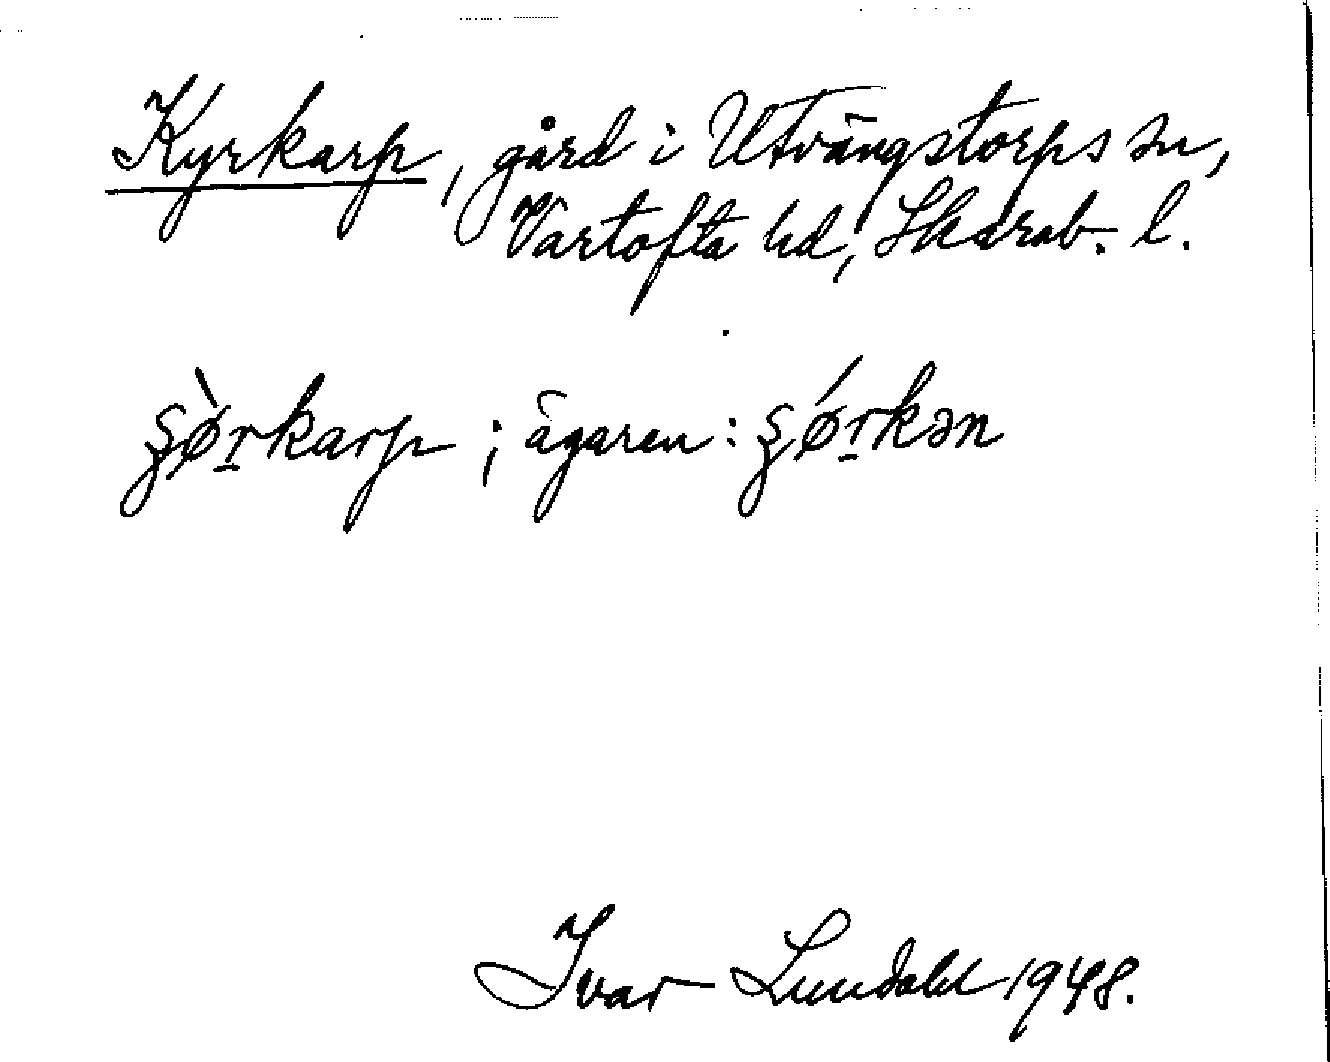 Kyrkarp, gård i Utvängstorps sn,
Vartofta hd, Skarab. l.
ʂø̀rkarp; ägaren: ʂǿrkən
Ivar Lundahl 1948.